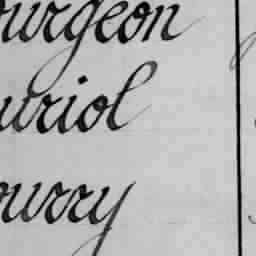 ourgeon
uriol
ourry